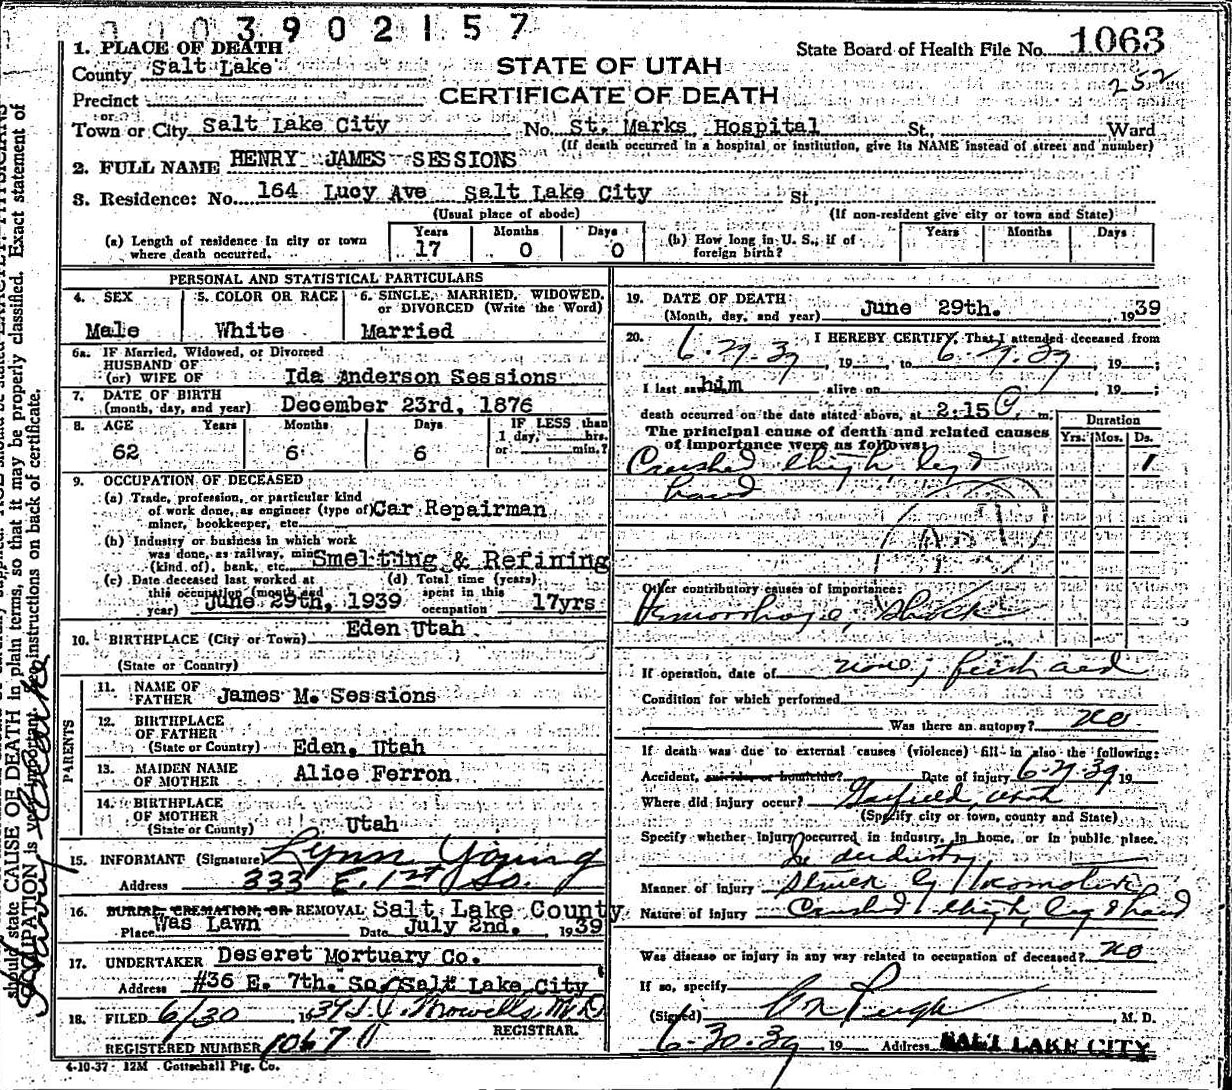 0003902157
1. PLACE OF DEATH
State Board of Health File No. 1063
County Salt Lake
STATE OF UTAH
252
Precinct
CERTIFICATE OF DEATH
or
Town or City Salt Lake City No. St. Marks Hospital St., Ward
(If death occurred in a hospital or institution, give its NAME instead of street and number)
2. FULL NAME HENRY JAMES SESSIONS
3. Residence: No. 164 Lucy Ave Salt Lake City St.,
(Usual place of abode) (If non-resident give city or town and State)
(a) Length of residence in city or town where death occurred. Years 17 Months 0 Days 0
(b) How long in U. S., if of foreign birth? Years Months Days
PERSONAL AND STATISTICAL PARTICULARS
4. SEX 5. COLOR OR RACE 6. SINGLE, MARRIED, WIDOWED, or DIVORCED (Write the Word)
Male White Married
6a. IF Married, Widowed, or Divorced
HUSBAND OF
(or) WIFE OF Ida Anderson Sessions
7. DATE OF BIRTH
(month, day, and year) December 23rd, 1876
8. AGE Years Months Days IF LESS than
1 day, hrs.
62 6 6 or min.?
9. OCCUPATION OF DECEASED
(a) Trade, profession, or particular kind
of work done, as engineer (type of) Car Repairman
miner, bookkeeper, etc
(b) Industry or business in which work
was done, as railway, mine Smelting & Refining
(kind of), bank, etc.
(c) Date deceased last worked at (d) Total time (years)
this occupation (month and spent in this
year) June 29th, 1939 occupation 17yrs
10. BIRTHPLACE (City or Town) Eden Utah
(State or Country)
PARENTS
11. NAME OF
FATHER James M. Sessions
12. BIRTHPLACE
OF FATHER
(State or Country) Eden, Utah
13. MAIDEN NAME
OF MOTHER Alice Ferron
14. BIRTHPLACE
OF MOTHER
(State or County) Utah
15. INFORMANT (Signature) Lynn Young
Address 333 E. 1st So.
16. BURIAL, CREMATION, OR REMOVAL Salt Lake County
Place Was Lawn Date July 2nd. 1939
17. UNDERTAKER Deseret Mortuary Co.
Address #36 E. 7th. So. Salt Lake City
18. FILED 6/30 1939 M.D.
REGISTRAR.
REGISTERED NUMBER 1067
4-10-37 12M Gottschall Ptg. Co.
19. DATE OF DEATH
(Month, day, and year) June 29th. , 1939
20. I HEREBY CERTIFY, That I attended deceased from
6-29-39, 19 , to 6-29-39, 19 ;
I last saw him alive on , 19 ;
death occurred on the date stated above, at 2:15 P. m.
The principal cause of death and related causes
of importance were as follows:
Duration
Yrs. Mos. Ds.
Crushed thigh, leg & 1
hand
Other contributory causes of importance:
Hemorrhage, Shock
If operation, date of none; first aid
Condition for which performed
Was there an autopsy? no
If death was due to external causes (violence) fill in also the following:
Accident, suicide or homicide? Date of injury 6-29-39 19
Where did injury occur? Garfield, Utah
(Specify city or town, county and State)
Specify whether injury occurred in industry, in home, or in public place.
In industry
Manner of injury Struck by Locomotive
Nature of injury Crushed thigh, leg & hand
Was disease or injury in any way related to occupation of deceased? no
If so, specify
(Signed) , M. D.
6-30-39 19 Address SALT LAKE CITY
should state CAUSE OF DEATH in plain terms, so that it may be properly classified. Exact statement of
OCCUPATION is very important. See instructions on back of certificate.